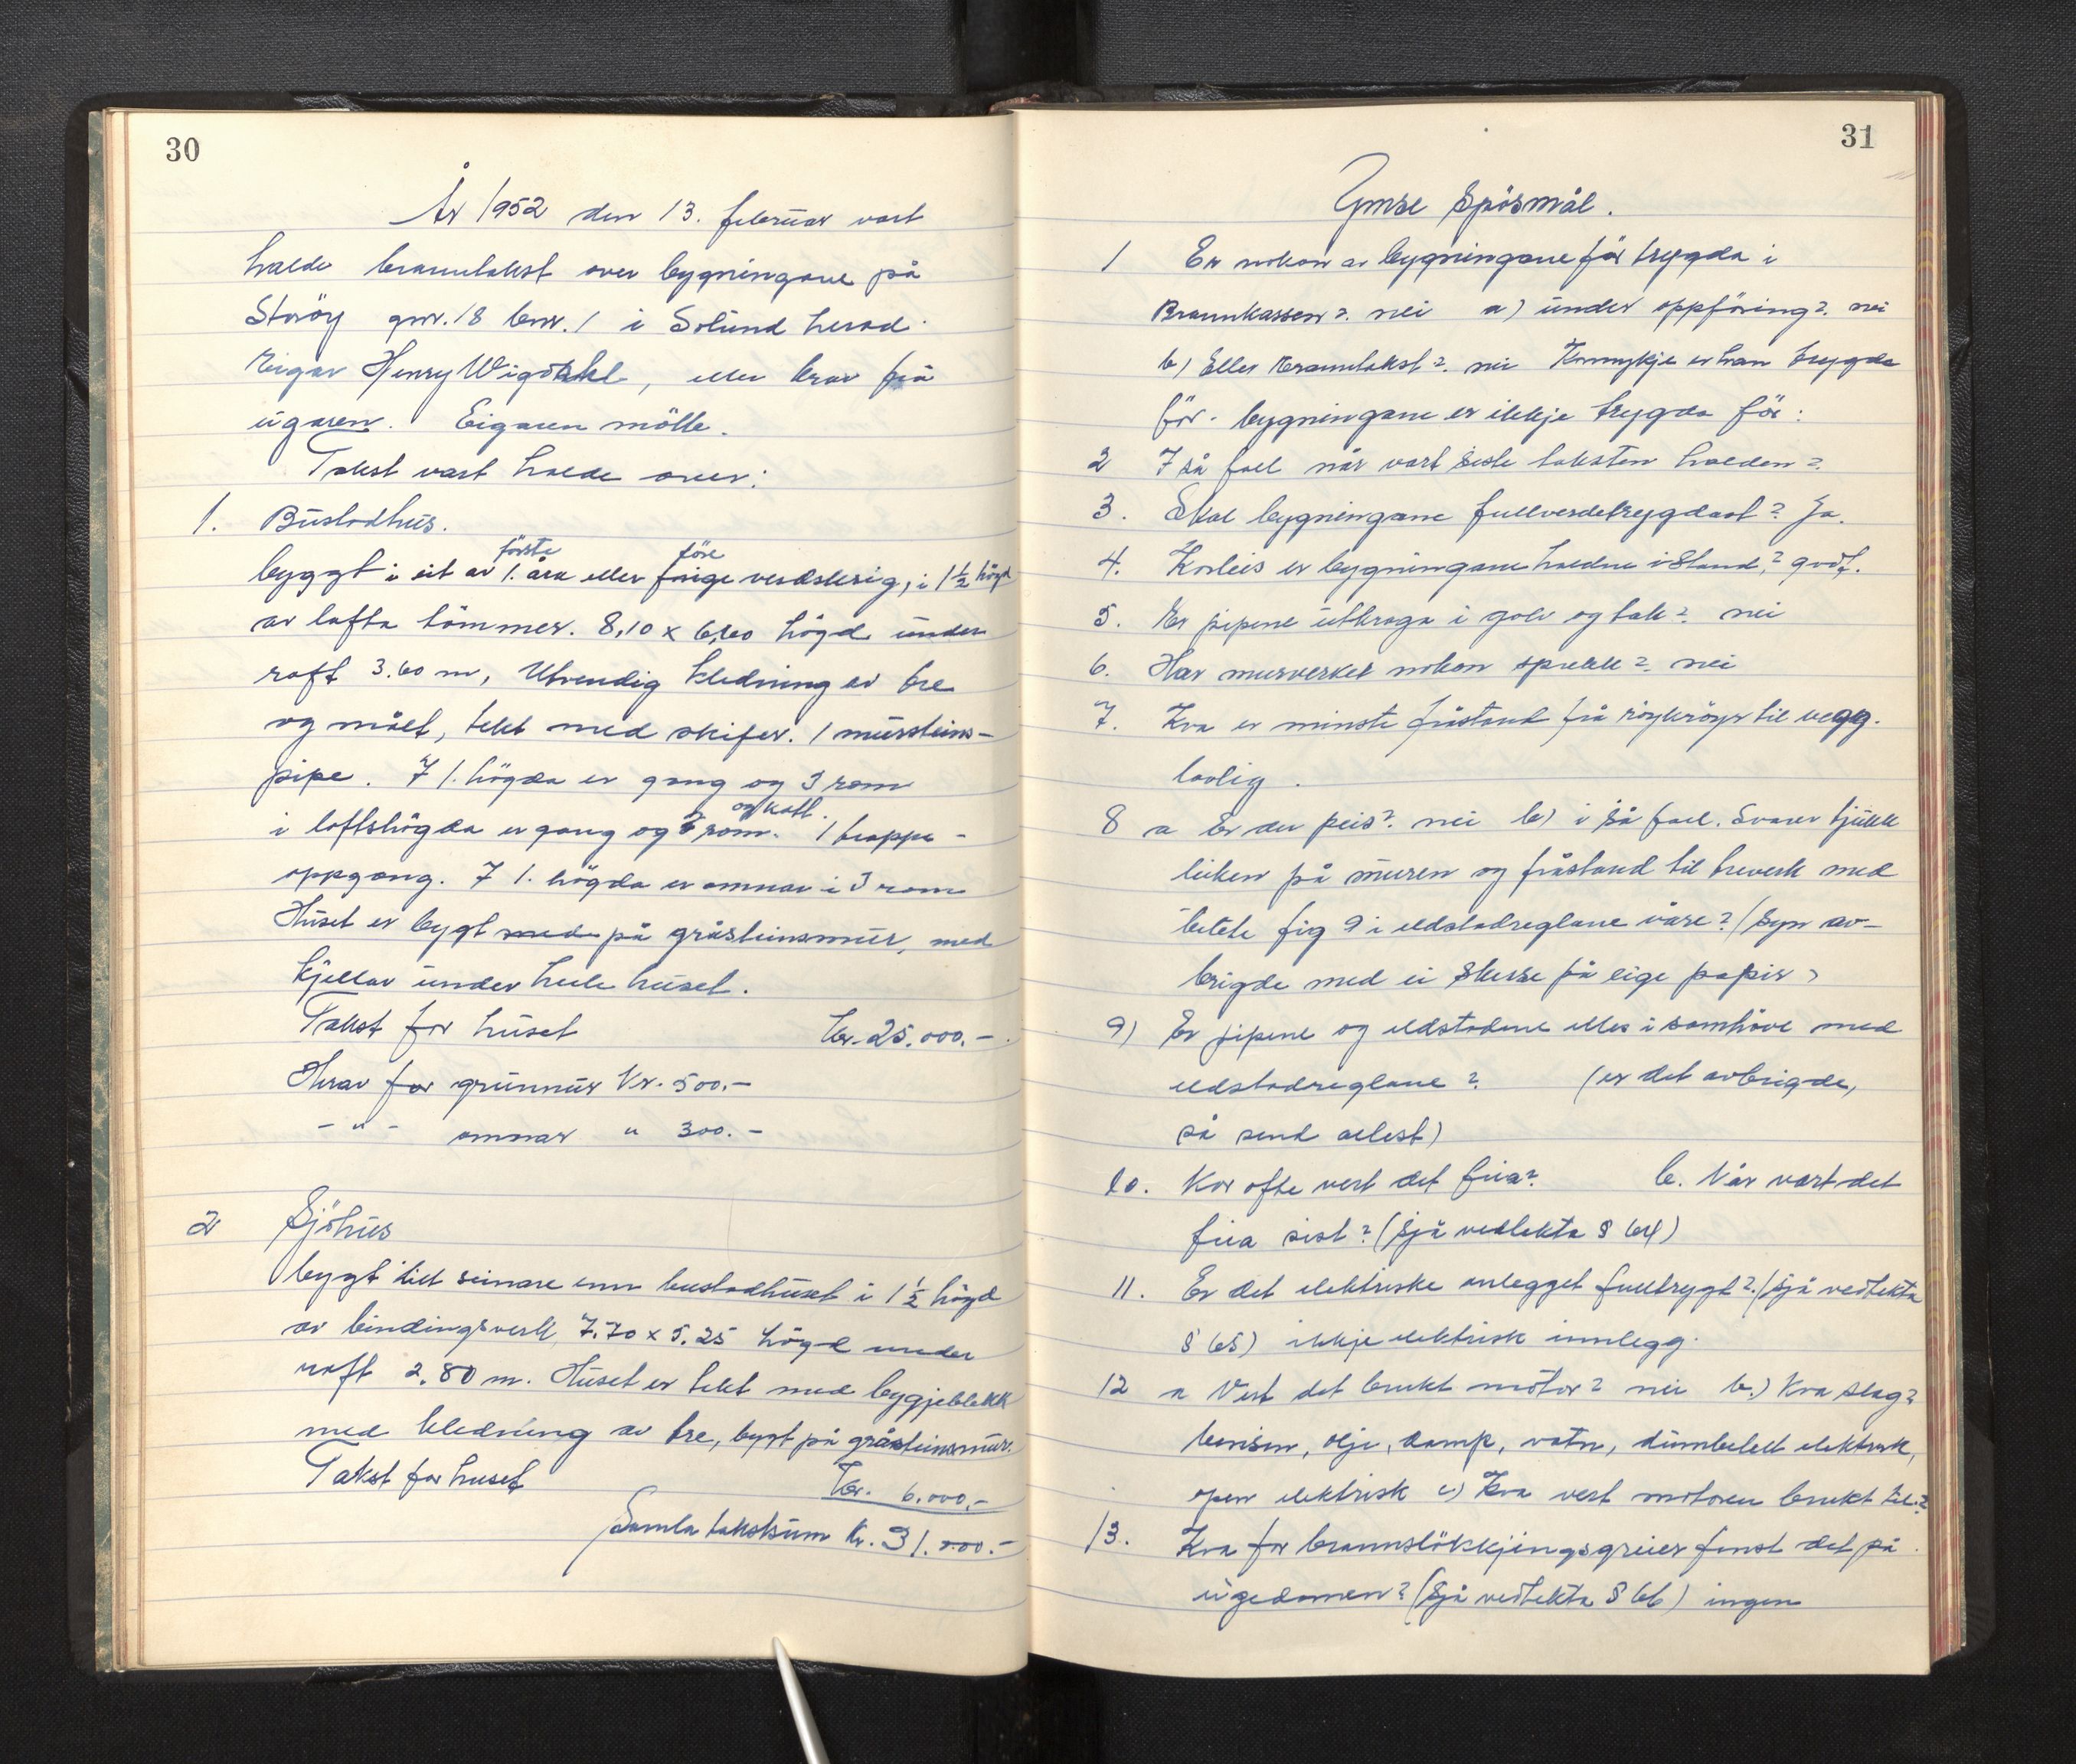 30
År 1952 den 13. februar vart
halde branntakst over bygningane på
Storöy gnr. 18 bnr. 1 i Solund herad.
Eigar Henry Wigdahl, etter krav frå
eigaren. Eigaren mötte.
Takst vart halde over:
1. Bustadhus.
förste före
byggt i eit av 1. åra etter forige verdskrig, i 1½ högd
av lafta tömmer. 8,10 x 6,60 högd under
raft 3.60 m, Utvendig kledning av tre
og målt, tekt med skifer. 1 mursteins-
pipe. I 1. högda er gang og 3 rom
og kott.
i loftshögda er gang og rom. 1 trappe-
oppgang. I 1. högda er omnar i 3 rom
Huset er bygt med på gråsteinsmur, med
kjellar under heile huset.
Takst for huset kr. 25.000.-
Herav for grunnmur kr. 500.-
- " - omnar " 300.-
2 Sjöhus
bygt litt seinare enn bustadhuset i 1½ högd
av bindingsverk 7.70 x 5.25 högd under
raft 2.80 m. Huset er tekt med bygjeblekk
med kledning av tre, bygt på gråsteinsmur.
Takst for huset kr. 6.000.-
Samla takstsum kr. 31.000.-
31
Ymse Spösmål.
1 Er nokon av bygningane för trygda i
Brannkassen? nei a) under oppföring? nei
b) Eller branntakst? nei Kormykje er han trygda
för. bygningane er ikkje trygda för.
2 I så fall når vart siste taksten halden?
3. Skal bygningane fullverdetrygdast? Ja.
4. Korleis er bygningane haldne i Stand? godt.
5. Er pipene utkraga i golv og tak? nei
6. Har murverket nokon sprekk? nei
7. Kva er minste fråstand frå röykröyr til vegg.
lovlig.
8 a Er der peis? nei b) i så fall. Svarar tjukk
leiken på muren og fråstand til treverk med
fig 9 i eldstadreglane våre? (Syn av-
brigde med ei skisse på eige papir)
9) Er pipene og eldstadene elles i samhöve med
eldstadreglane? (er det avbrigde,
så send attest)
10. Kor ofte vert det feia? b. Når vart det
feia sist? (Sjå vedtekta § 64)
11. Er det elektriske anlegget fulltrygt? (Sjå vedtekta
§ 65) ikkje elektrisk innlegg.
12 a Vert det brukt motor? nei b.) Kva slag?
bensin, olje, damp, vatn, elektrisk,
open elektrisk c) Kva vert motoren brukt til?
13. Kva for brannslökkjingsgreier finst det på
eigedomen? (Sjå vedtekta § 66) ingen